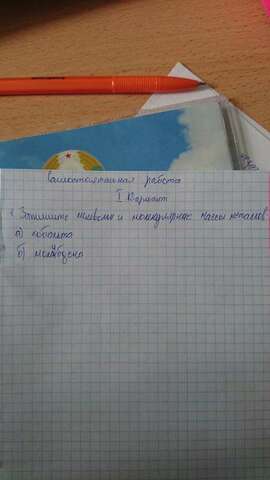 самостоятельная работа
I Вариант
Запишите символы и молекулярные массы металлов
а) кобальта
б) молибдена